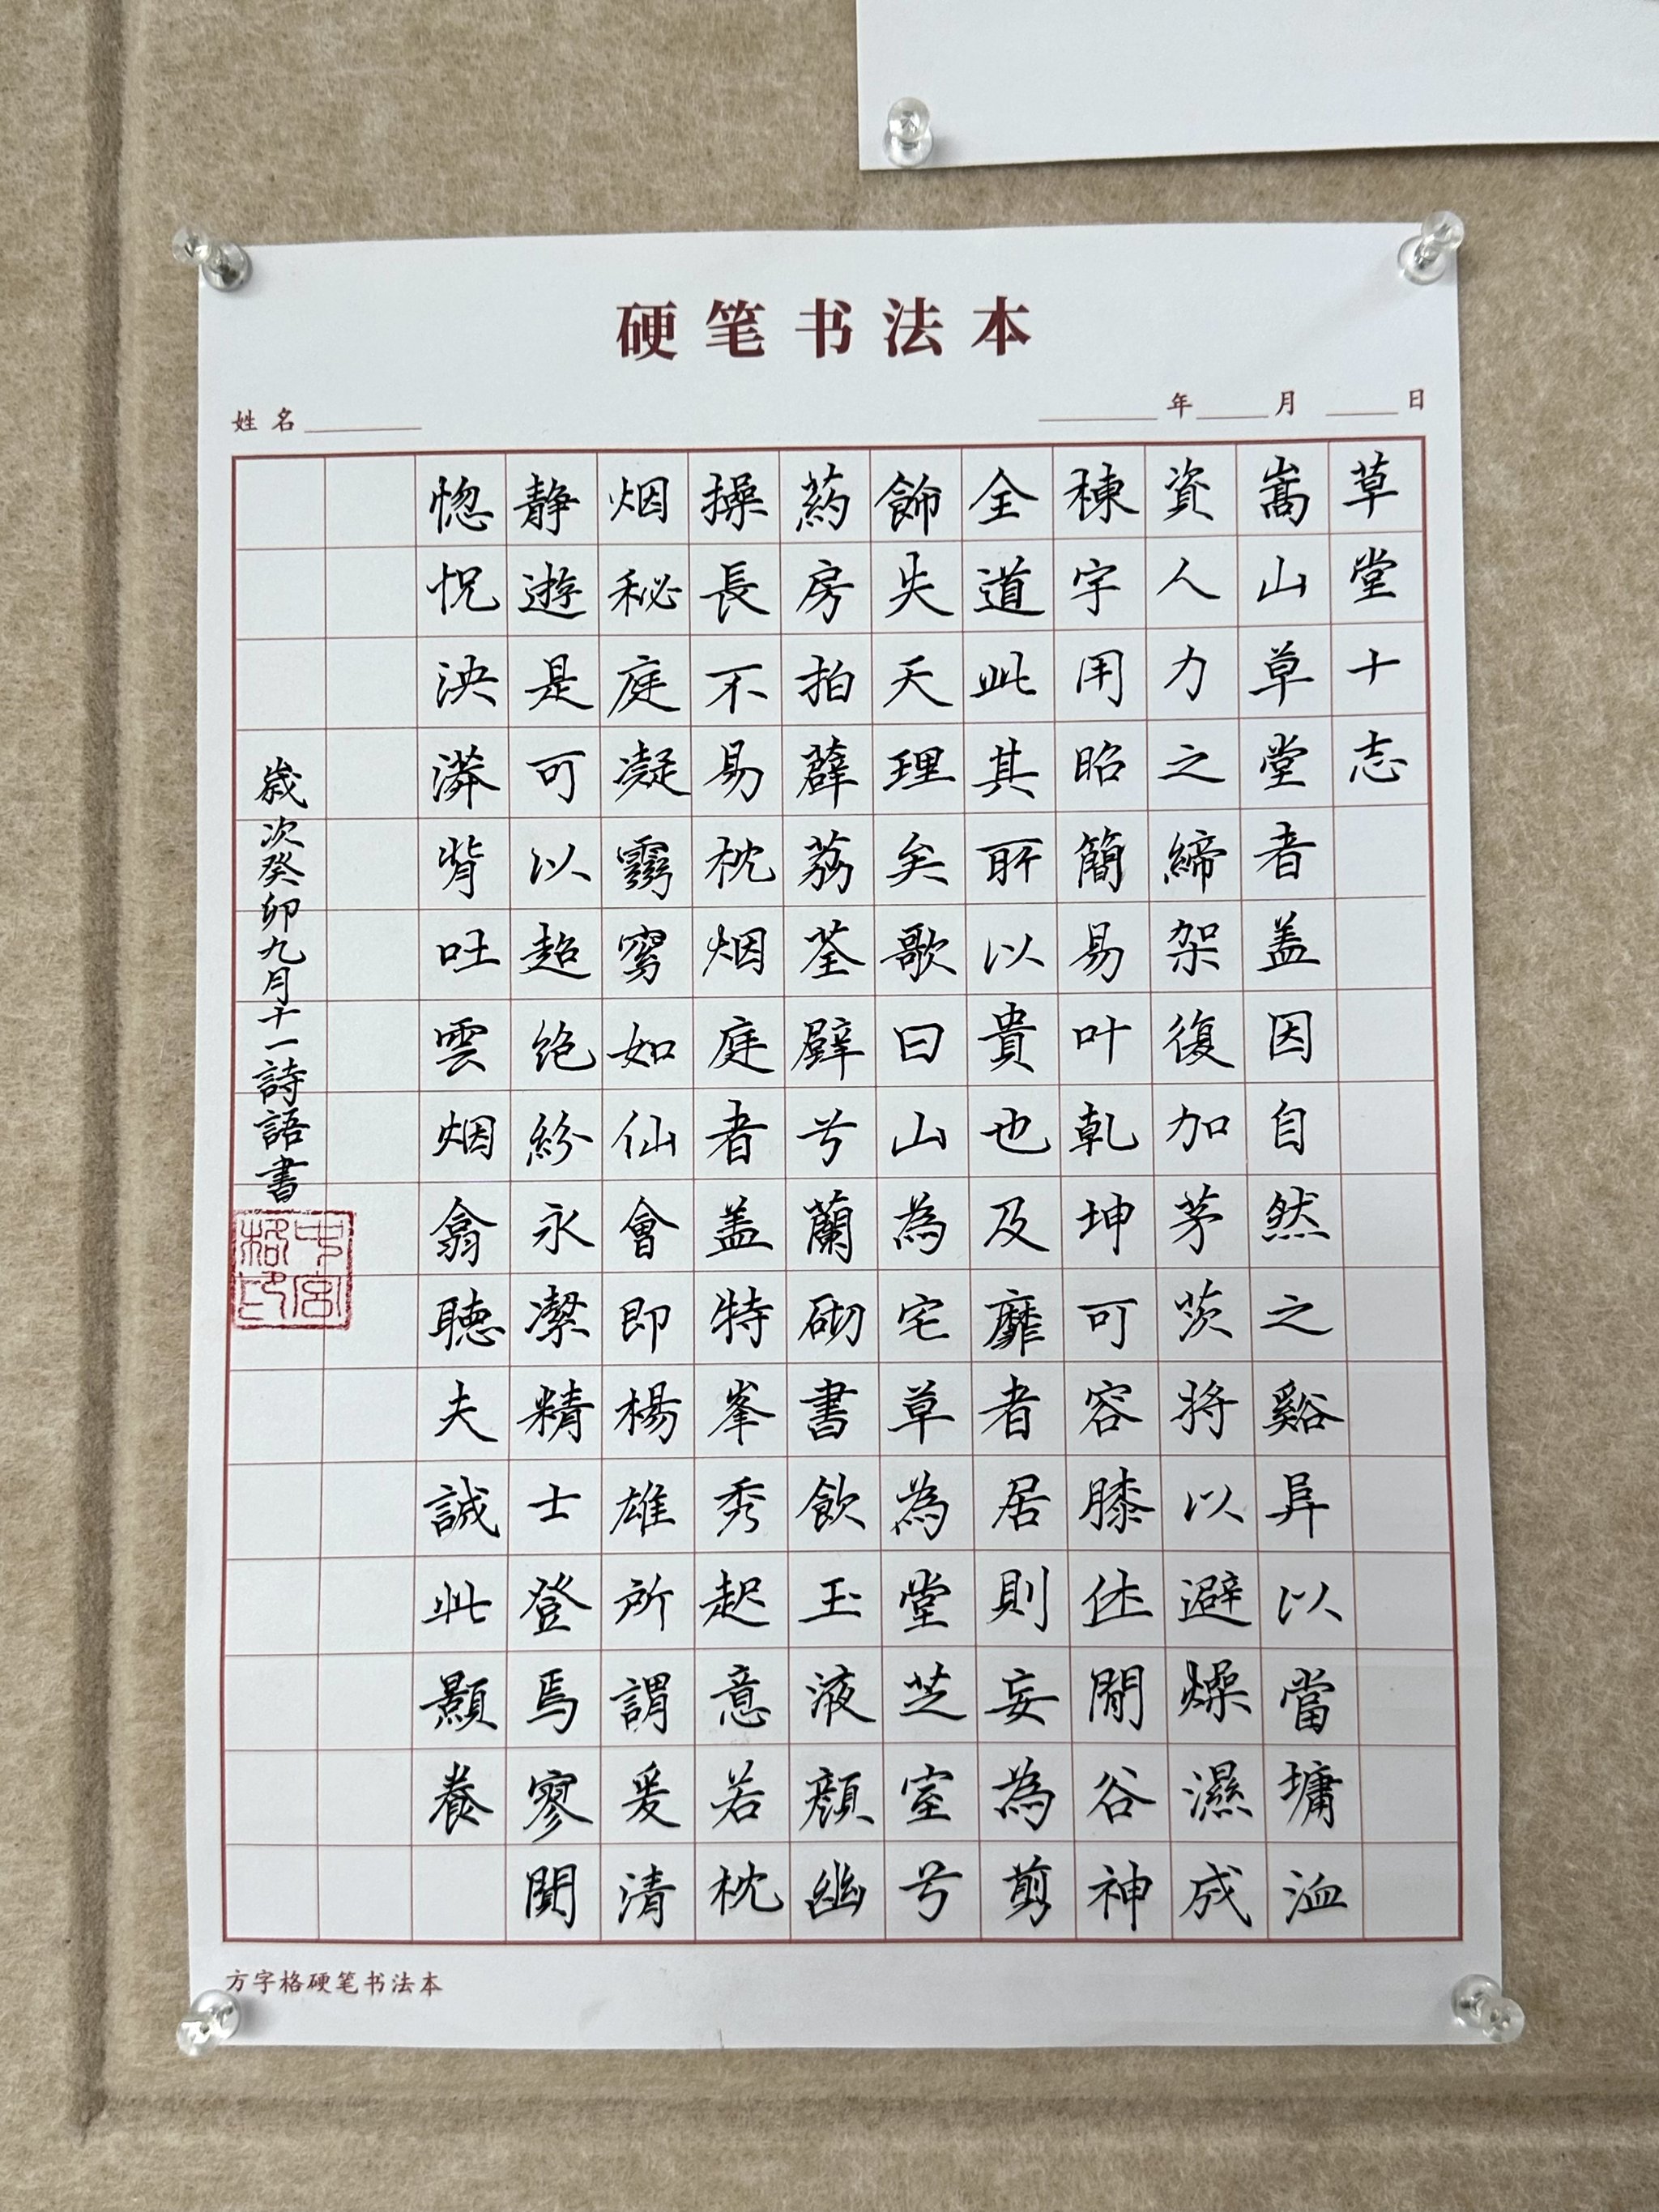 硬笔书法本
姓名 年 月 日
草堂十志
嵩山草堂者盖因自然之谿阜以當墉洫
資人力之締架復加茅茨将以避燥濕成
棟宇用昭簡易叶乾坤可容膝休閒谷神
全道此其所以貴也及靡者居則妄為剪
飾失天理矣歌曰山為宅草為堂芝室兮
葯房拍薜荔荃壁兮蘭砌書飲玉液顏幽
操長不易枕烟庭者盖特峯秀起意若枕
烟秘庭凝如仙會即楊雄所謂爰清
静遊是可以超绝紛永潔精士登焉寥閴
惚怳泱漭背吐雲烟翕聴夫誠此顥養
歲次癸卯九月十一詩語書
中宫格印
方字格硬笔书法本